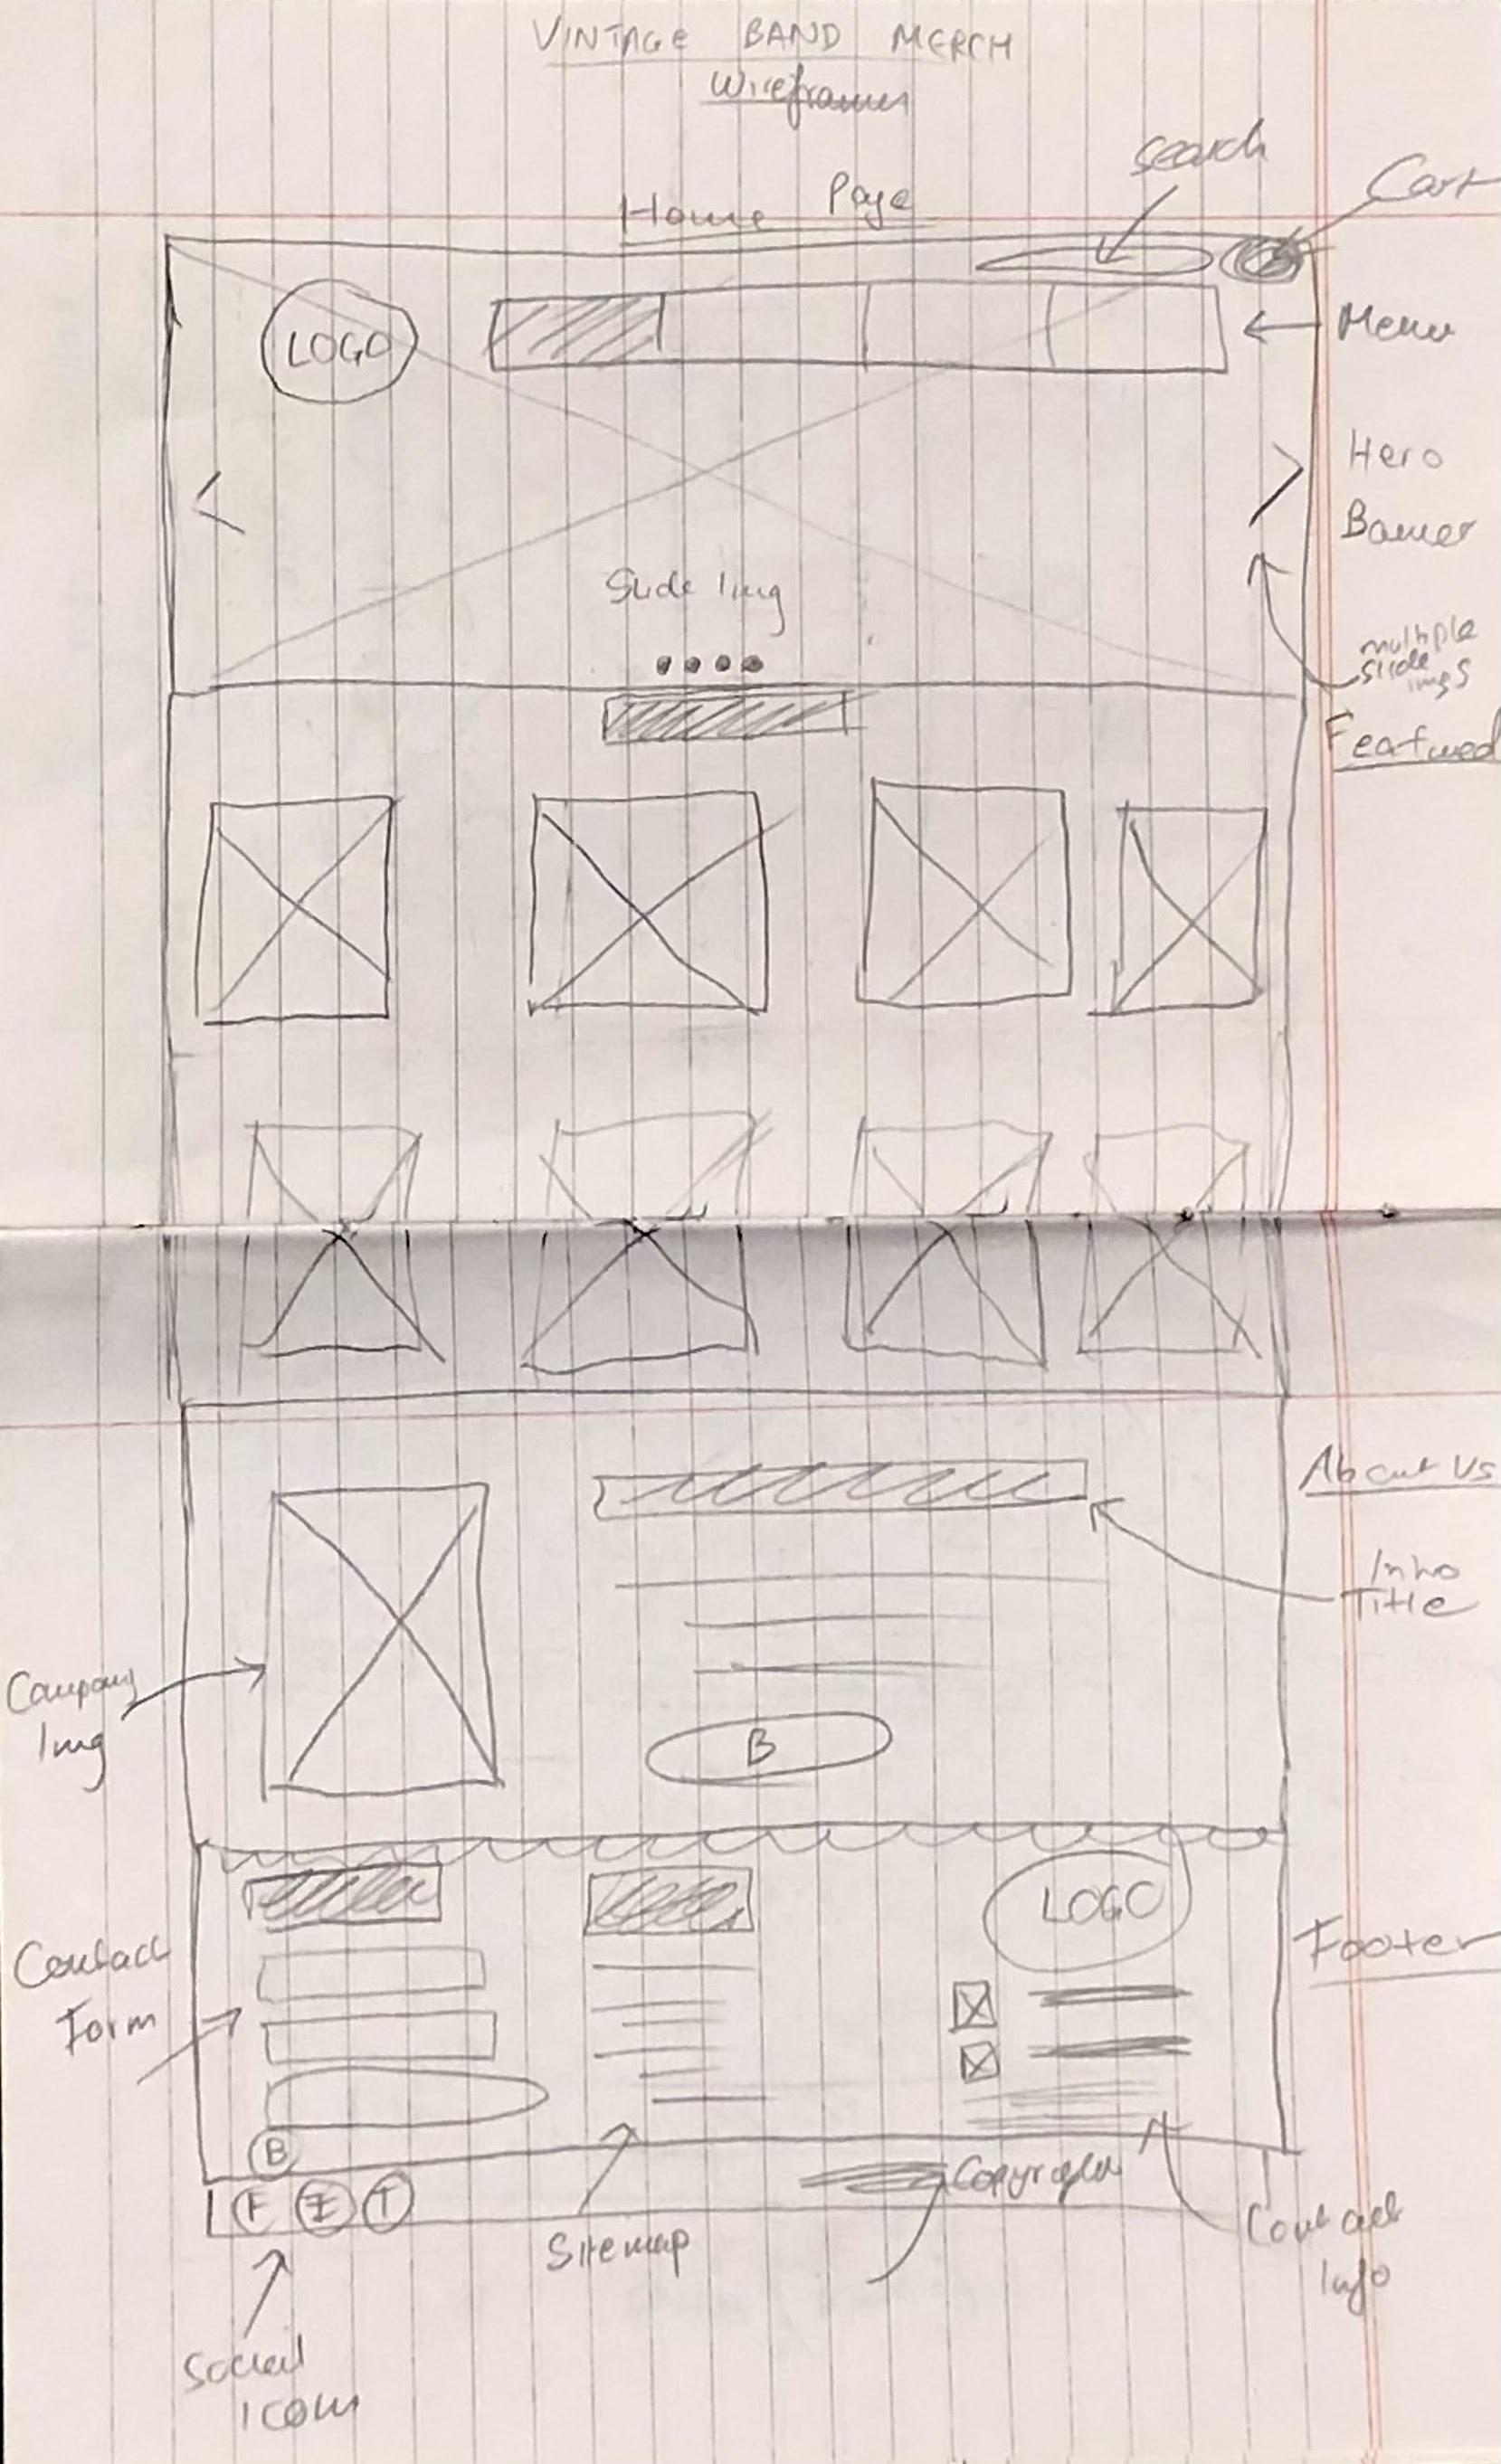 VINTAGE BAND MERCH
Wireframes
Home Page
search
Cart
LOGO
Menu
Hero
Banner
Slide Img
multiple
slide
imgs
Featured
About Us
Intro
Title
Company
Img
B
LOGO
Contact
Form
Footer
B
F
T
Copyright
Sitemap
Contact
Info
Social
icons